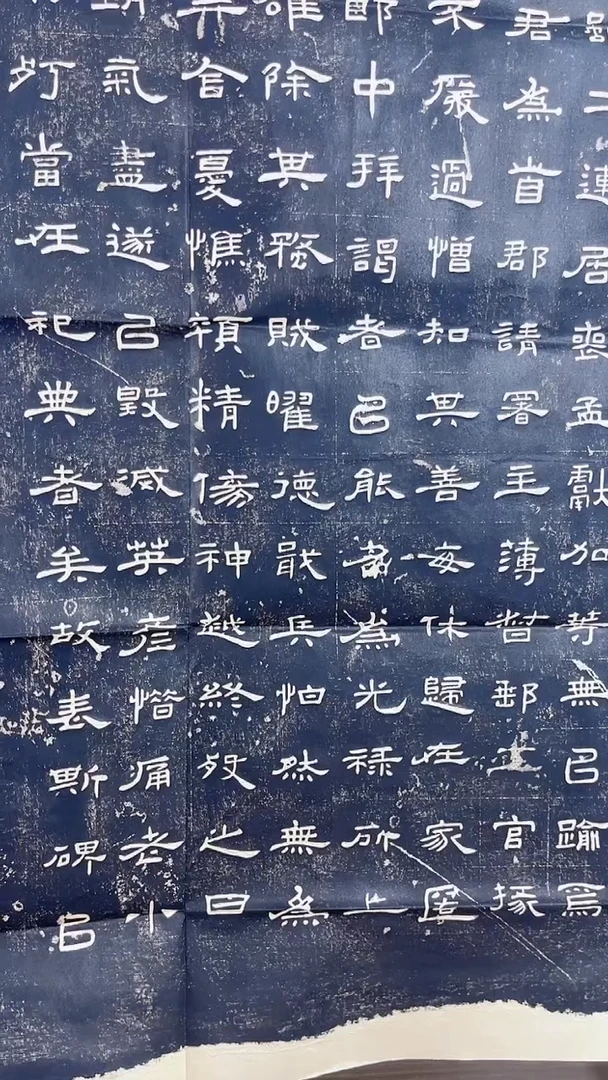 二連居喪孟獻加等無以踰焉
君為首郡請署主薄督郵五官掾
嚴過憎知其善每休歸在家匿
郎中拜謁者以能名為光祿所上
雄除其蝥賊曜德戢兵怕然無為
弆含憂憔顇精傷神越終歿之日
氣盡遂以毀滅英彥惜痛老小
於當在祀典者矣故表斯碑以